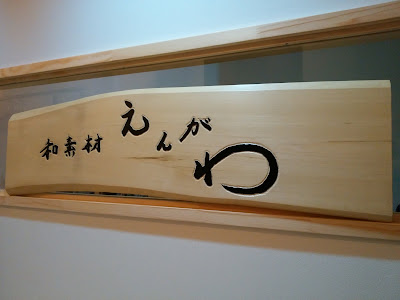 和素材 えんがわ